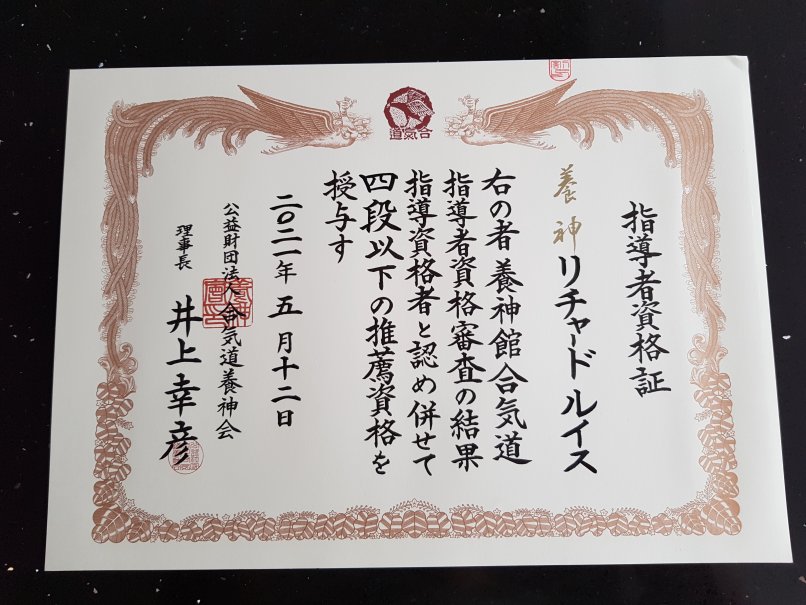 合氣道
指導者資格証
養神リチャードルイス
右の者養神館合気道
指導者資格審査の結果
指導資格者と認め併せて
四段以下の推薦資格を
授与す
二〇二一年五月十二日
公益財団法人合気道養神会
理事長井上幸彦